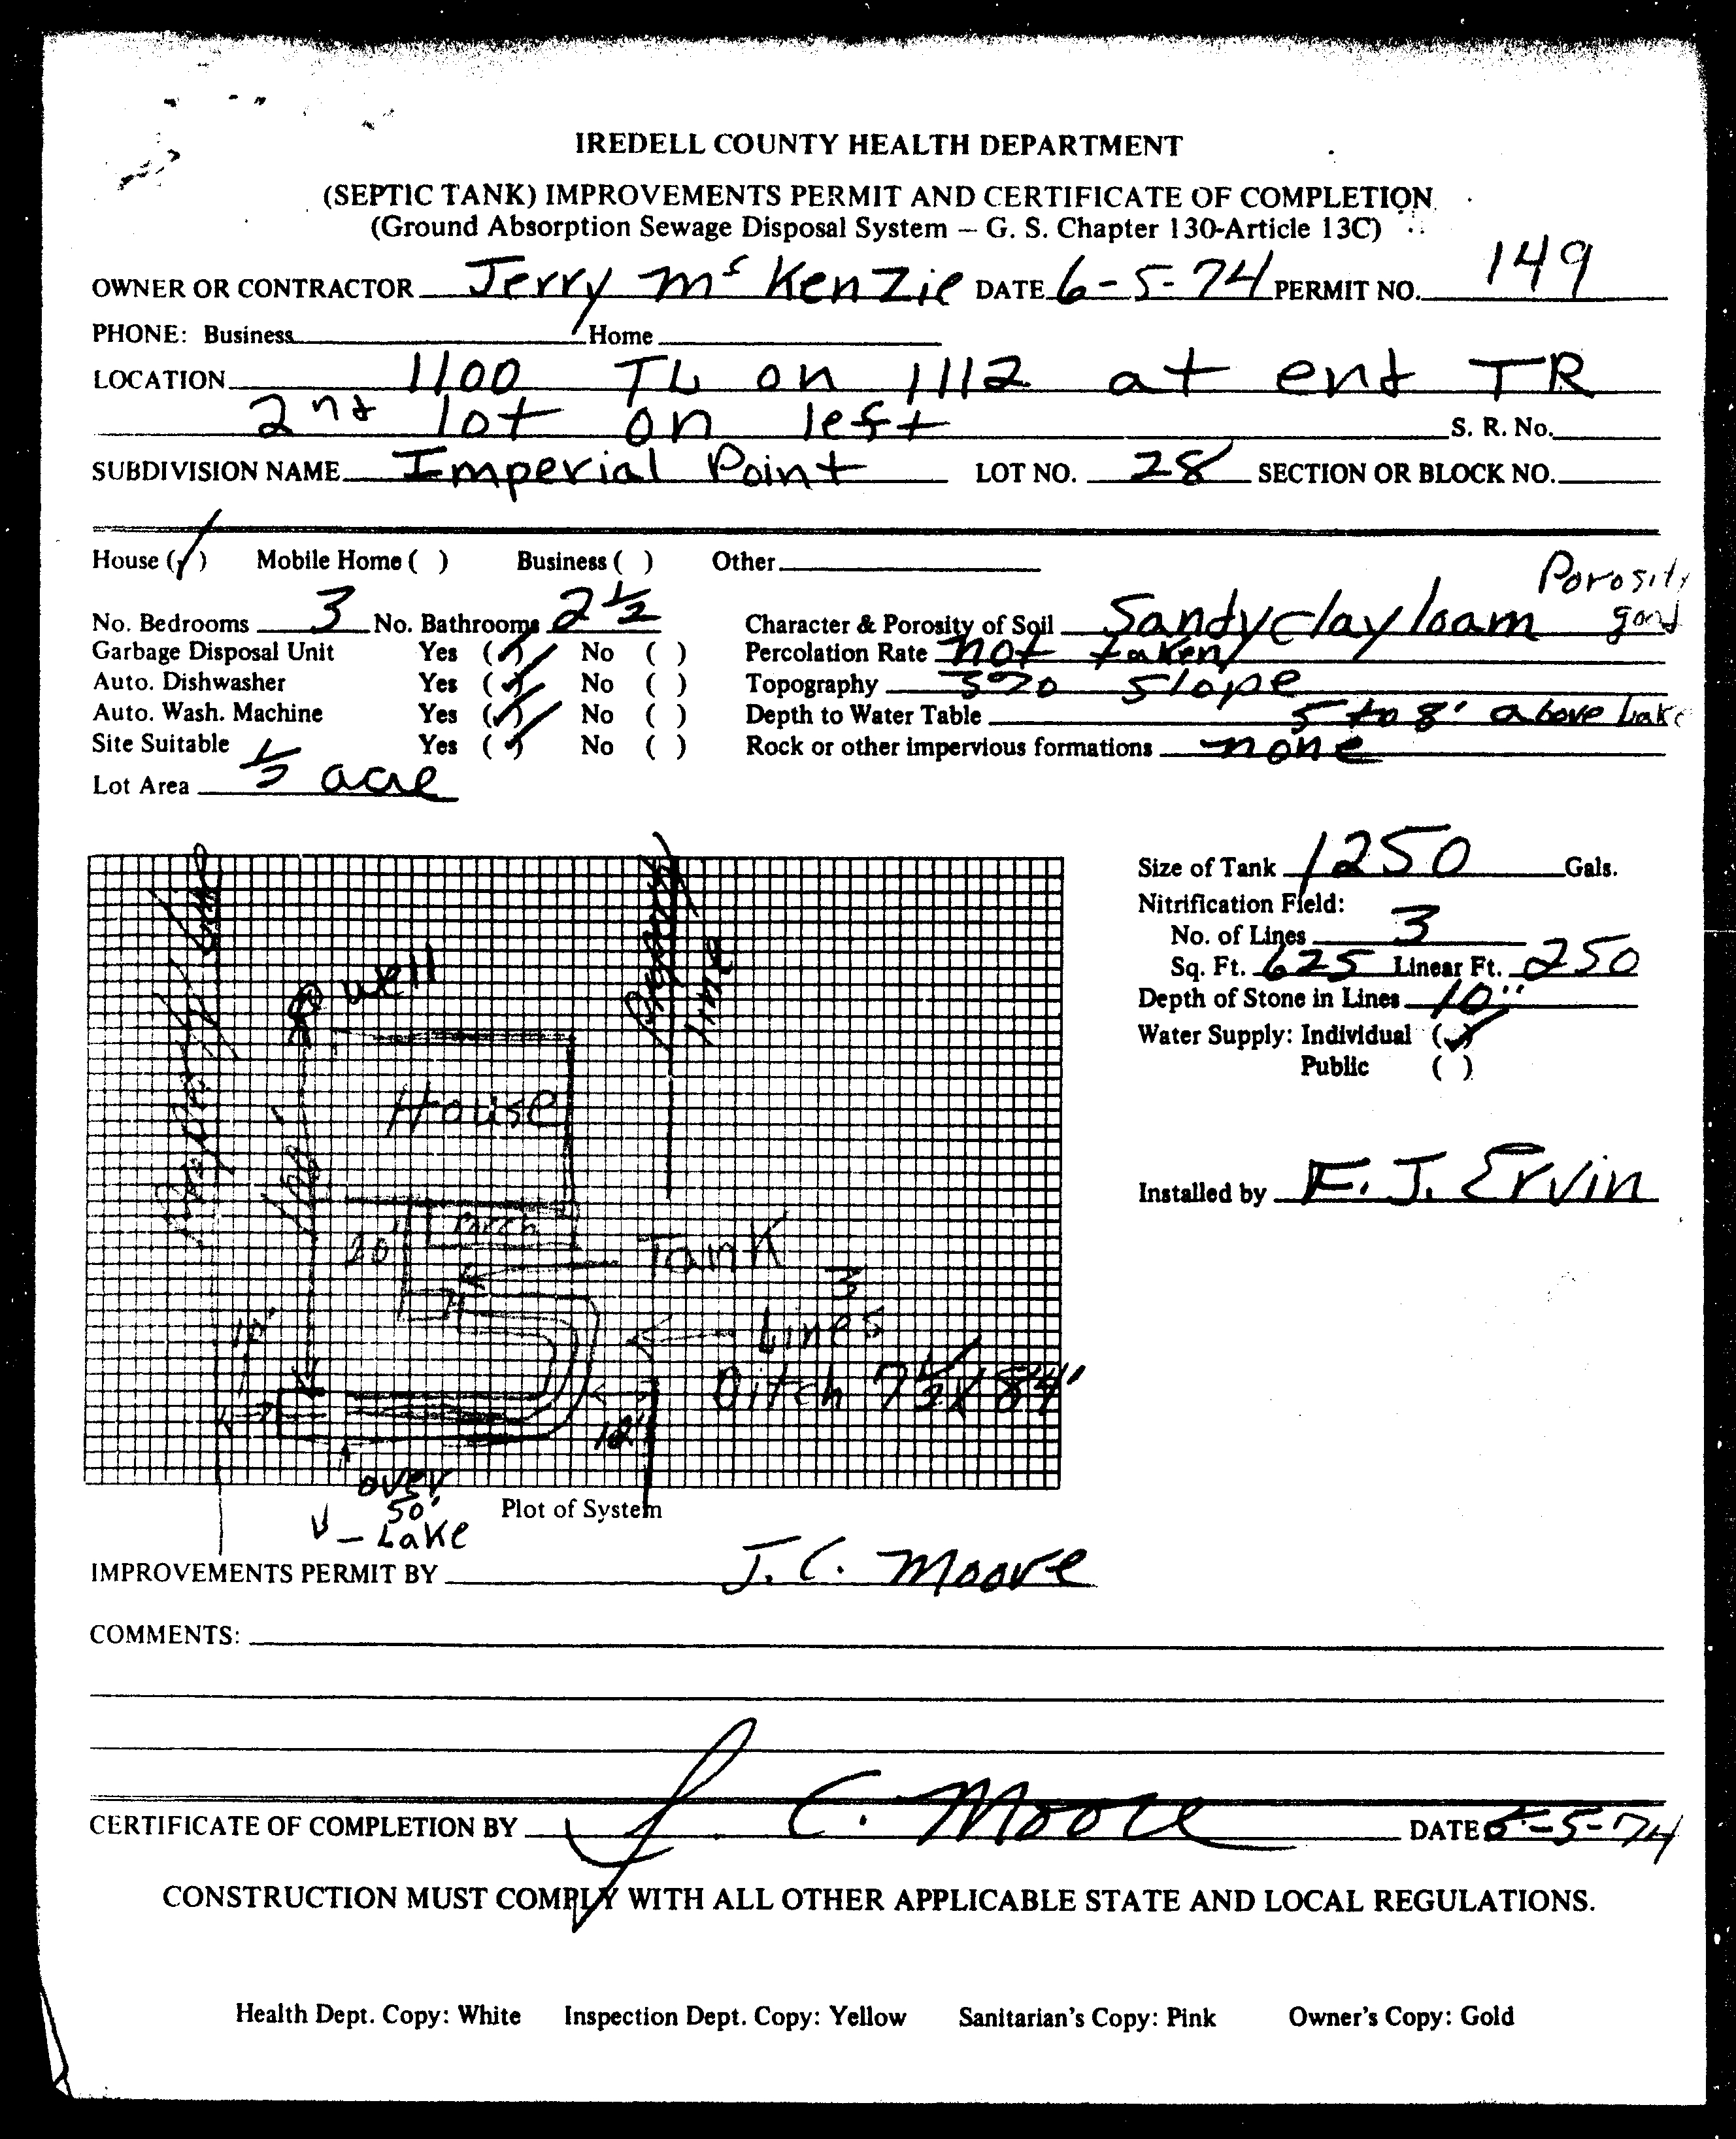 IREDELL COUNTY HEALTH DEPARTMENT
(SEPTIC TANK) IMPROVEMENTS PERMIT AND CERTIFICATE OF COMPLETION
(Ground Absorption Sewage Disposal System – G. S. Chapter 130-Article 13C)
OWNER OR CONTRACTOR Jerry McKenzie DATE 6-5-74 PERMIT NO. 149
PHONE: Business Home
LOCATION 1100 TL on 1112 at end TR
2nd lot on left S. R. No.
SUBDIVISION NAME Imperial Point LOT NO. 28 SECTION OR BLOCK NO.
House (✓) Mobile Home ( ) Business ( ) Other
No. Bedrooms 3 No. Bathrooms 2 1/2 Character & Porosity of Soil Sandy clay loam Porosity good
Garbage Disposal Unit Yes (✓) No ( ) Percolation Rate not taken
Auto. Dishwasher Yes (✓) No ( ) Topography 5% slope
Auto. Wash. Machine Yes (✓) No ( ) Depth to Water Table 5 to 8' above Lake
Site Suitable Yes (✓) No ( ) Rock or other impervious formations none
Lot Area 1/2 acre
Size of Tank 1250 Gals.
Nitrification Field:
No. of Lines 3
Sq. Ft. 625 Linear Ft. 250
Depth of Stone in Lines 10"
Water Supply: Individual (✓)
Public ( )
Installed by F. J. Ervin
Property Line
Property Line
well
House
100'
Porch
20'
Tank
3
Lines
Ditch 7 1/2 X 84'
12'
over
50'
Plot of System
– Lake
IMPROVEMENTS PERMIT BY J. C. Moore
COMMENTS:
CERTIFICATE OF COMPLETION BY J. C. Moore DATE 6-5-74
CONSTRUCTION MUST COMPLY WITH ALL OTHER APPLICABLE STATE AND LOCAL REGULATIONS.
Health Dept. Copy: White Inspection Dept. Copy: Yellow Sanitarian's Copy: Pink Owner's Copy: Gold